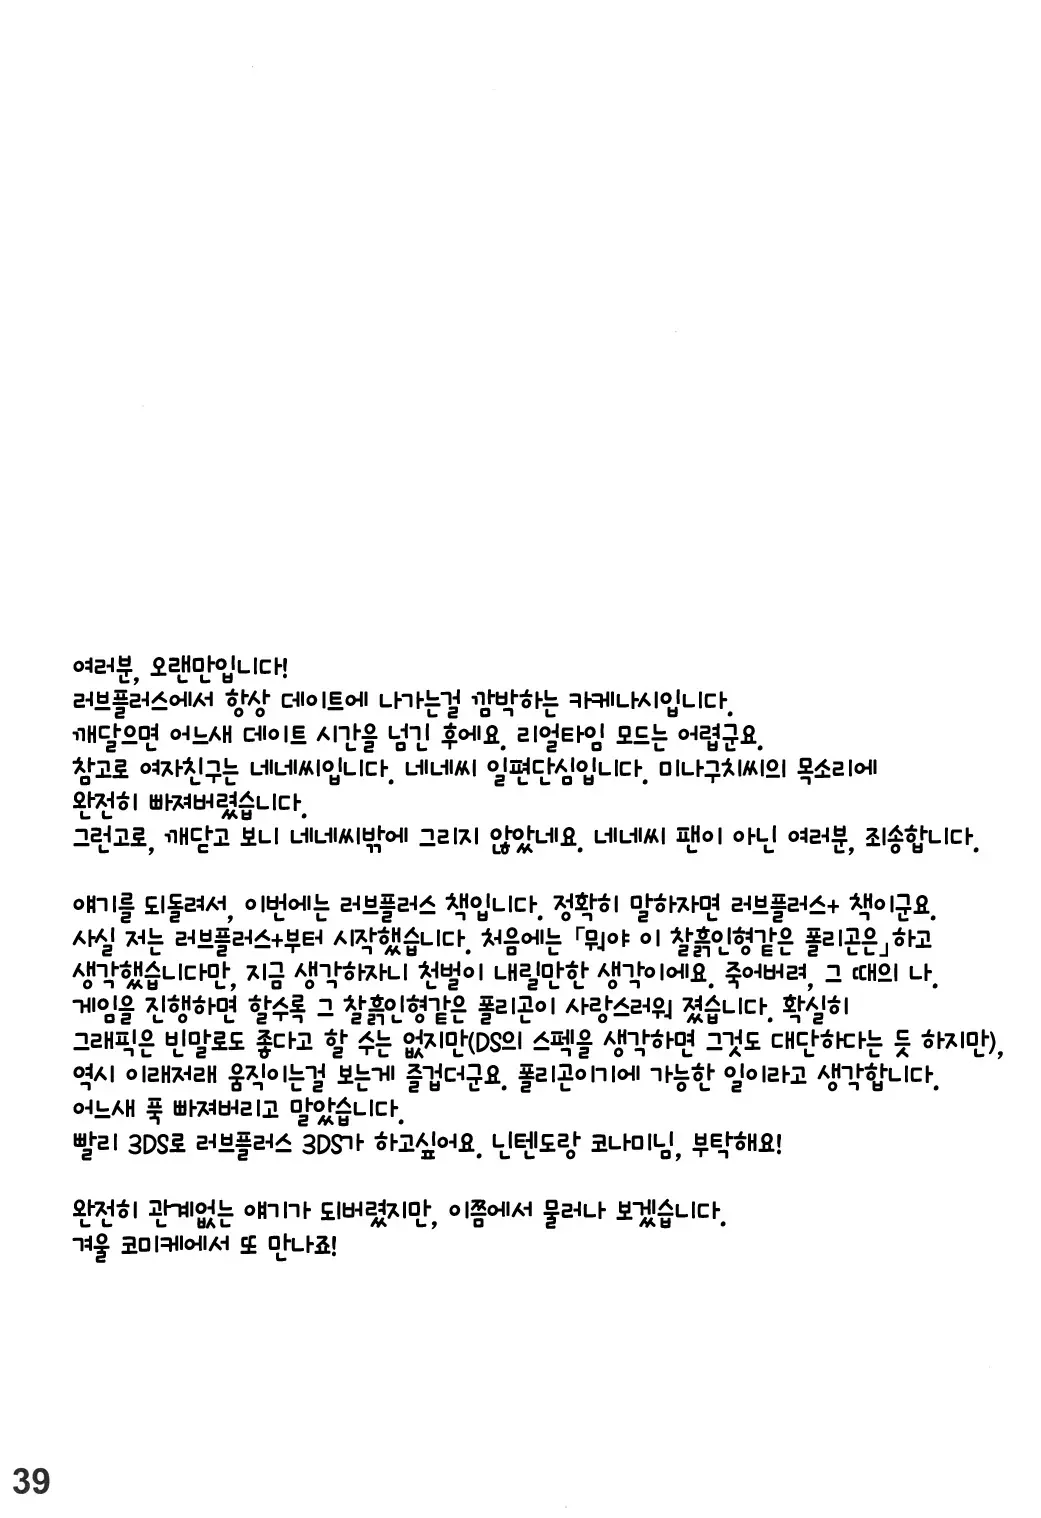 여러분, 오랜만입니다!
러브플러스에서 항상 데이트에 나가는걸 깜박하는 카케나시입니다.
깨달으면 어느새 데이트 시간을 넘긴 후에요. 리얼타임 모드는 어렵군요.
참고로 여자친구는 네네씨입니다. 네네씨 일편단심입니다. 미나구치씨의 목소리에
완전히 빠져버렸습니다.
그런고로, 깨닫고 보니 네네씨밖에 그리지 않았네요. 네네씨 팬이 아닌 여러분, 죄송합니다.
얘기를 되돌려서, 이번에는 러브플러스 책입니다. 정확히 말하자면 러브플러스+ 책이군요.
사실 저는 러브플러스+부터 시작했습니다. 처음에는 「뭐야 이 찰흙인형같은 폴리곤은」하고
생각했습니다만, 지금 생각하자니 천벌이 내릴만한 생각이에요. 죽어버려, 그 때의 나.
게임을 진행하면 할수록 그 찰흙인형같은 폴리곤이 사랑스러워 졌습니다. 확실히
그래픽은 빈말로도 좋다고 할 수는 없지만(DS의 스펙을 생각하면 그것도 대단하다는 듯 하지만),
역시 이래저래 움직이는걸 보는게 즐겁더군요. 폴리곤이기에 가능한 일이라고 생각합니다.
어느새 푹 빠져버리고 말았습니다.
빨리 3DS로 러브플러스 3DS가 하고싶어요. 닌텐도랑 코나미님, 부탁해요!
완전히 관계없는 얘기가 되버렸지만, 이쯤에서 물러나 보겠습니다.
겨울 코미케에서 또 만나죠!
39